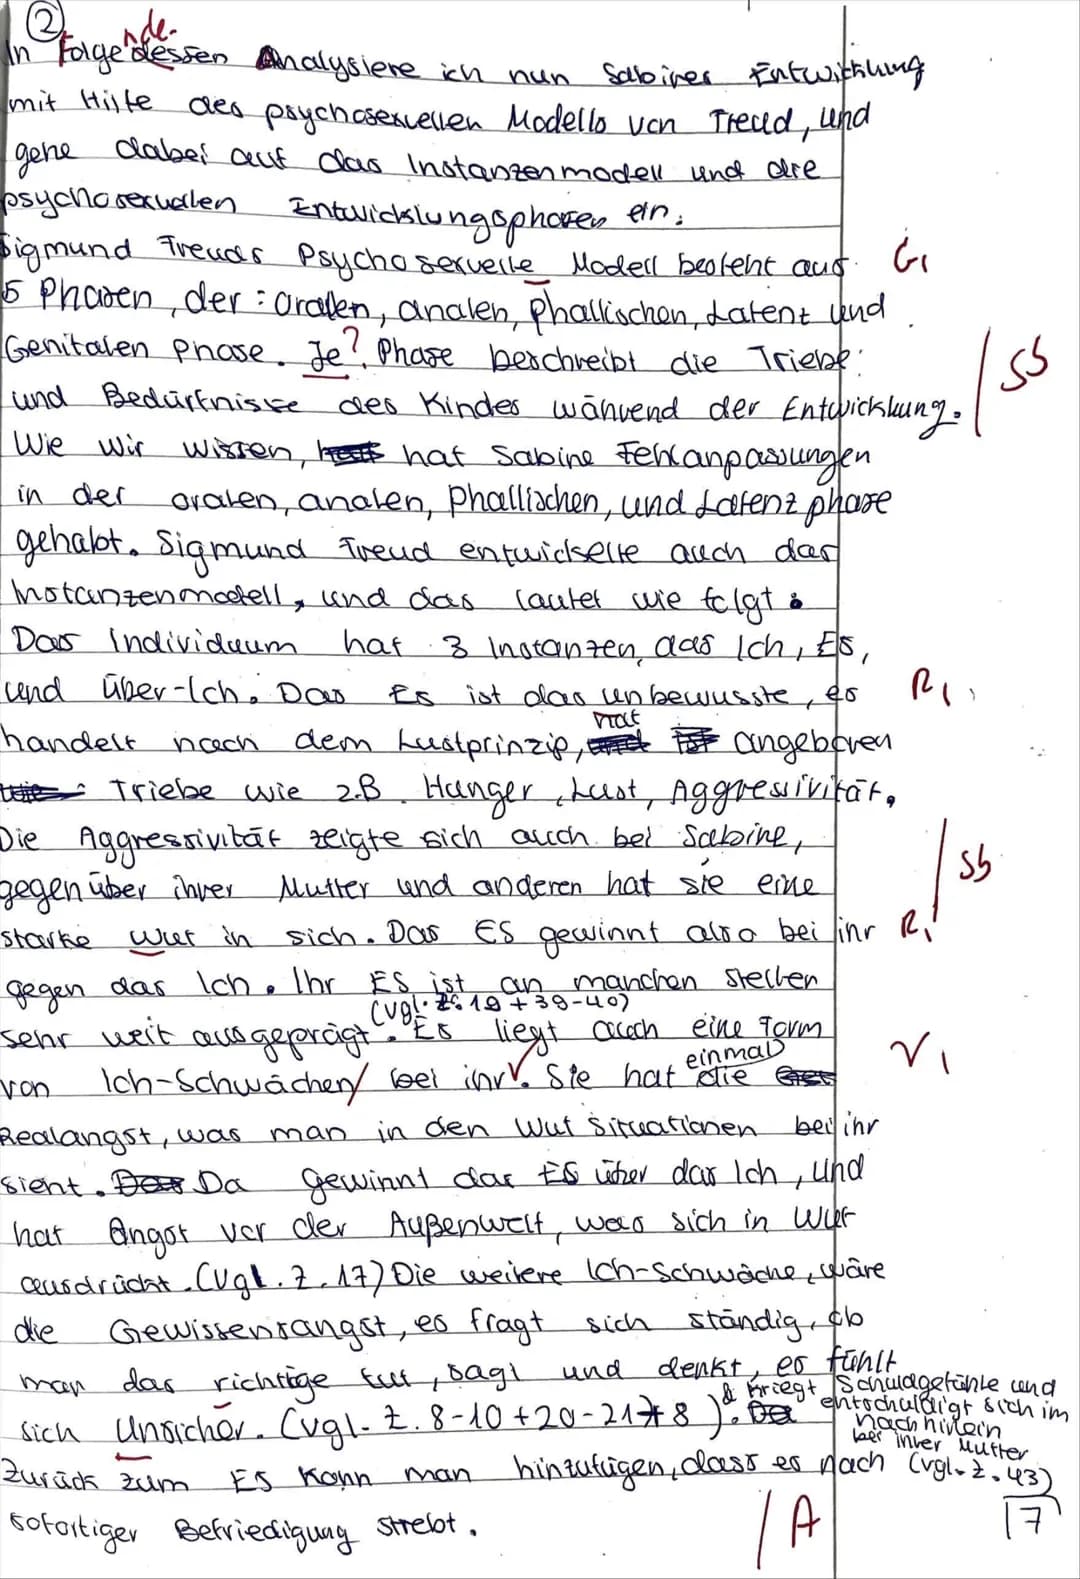 ②
nde.
In Folgedessen Analysiere ich nun Sabines Entwicklung
mit Hilfe des psychosexuellen Modells von Freud, und
gehe dabei auf das Instanzenmodell und die
psychosexuellen Entwicklungsphasen ein.
Sigmund Freuds Psychosexuelle Modell besteht aus G1
5 Phasen, der: oralen, analen, phallischen, Latenz und
Genitalen Phase. Je? Phase beschreibt die Triebe
und Bedürfnisse des Kindes während der Entwicklung. / Sb
Wie wir wissen, hat Sabine Fehlanpassungen
in der oralen, analen, Phallischen, und Latenzphase
gehabt. Sigmund Freud entwickelte auch das
Instanzenmodell, und das lautet wie folgt:
Das Individuum hat 3 Instanzen, das Ich, ES,
und Über-Ich. Das Es ist das unbewusste, es R1
handelt nach dem Lustprinzip, hat angeboren
Triebe wie z.B. Hunger, Lust, Aggressivität.
Die Aggressivität zeigte sich auch bei Sabine,
gegenüber ihrer Mutter und anderen hat sie eine / Sb
starke Wut in sich. Das ES gewinnt also bei ihr R1
gegen das Ich. Ihr ES ist an manchen stellen
sehr weit ausgeprägt (vgl. Z. 19 + 39-40). Es liegt auch eine Form V1
von Ich-Schwächen/ bei ihr√. Sie hat einmal die
Realangst, was man in den Wut Situationen bei ihr
sieht. Da gewinnt das ES über das Ich, und
hat Angst vor der Außenwelt, was sich in Wut
ausdrückt. (Vgl. Z. 17) Die weitere Ich-Schwäche, wäre
die Gewissensangst, es fragt sich ständig, ob
man das richtige tut, sagt und denkt, es fühlt
sich Unsicher. (vgl. Z. 8-10 + 20-21 + 8) & kriegt Schuldgefühle und entschuldigt sich im nachhinein bei ihrer Mutter (vgl. Z. 43)
Zurück zum ES kann man hinzufügen, dass es nach
sofortiger Befriedigung strebt. / A 17